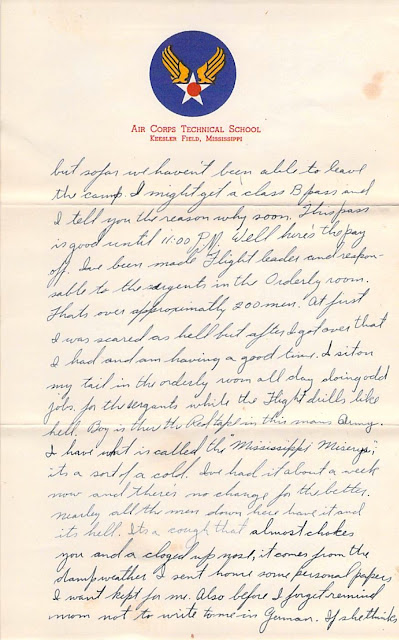 AIR CORPS TECHNICAL SCHOOL
KEESLER FIELD, MISSISSIPPI
but sofar we haven't been able to leave
the camp. I might get a class B pass and
I tell you the reason why soon. This pass
is good until 11:00 P.M. Well here's the pay
off. Ive been made Flight leader and respon-
sable to the sergents in the Orderly room.
Thats over approximatly 200 men. At first
I was scared as hell but after I got over that
I had and am having a good time. I sit on
my tail in the orderly room all day doing odd
jobs for the sergants while the Flight drills like
hell. Boy is ther the Red tape in this mans Army.
I have what is called the "Mississippi Miserys",
its a sort of a cold. Ive had it about a week
now and theres no change for the better.
nearly all the men down here have it and
its hell. Its a cough that almost chokes
you and a cloged up nose, it comes from the
damp weather I sent home some personal papers
I want kept for me. Also before I forget remind
mom not to write to me in German. If she thinks